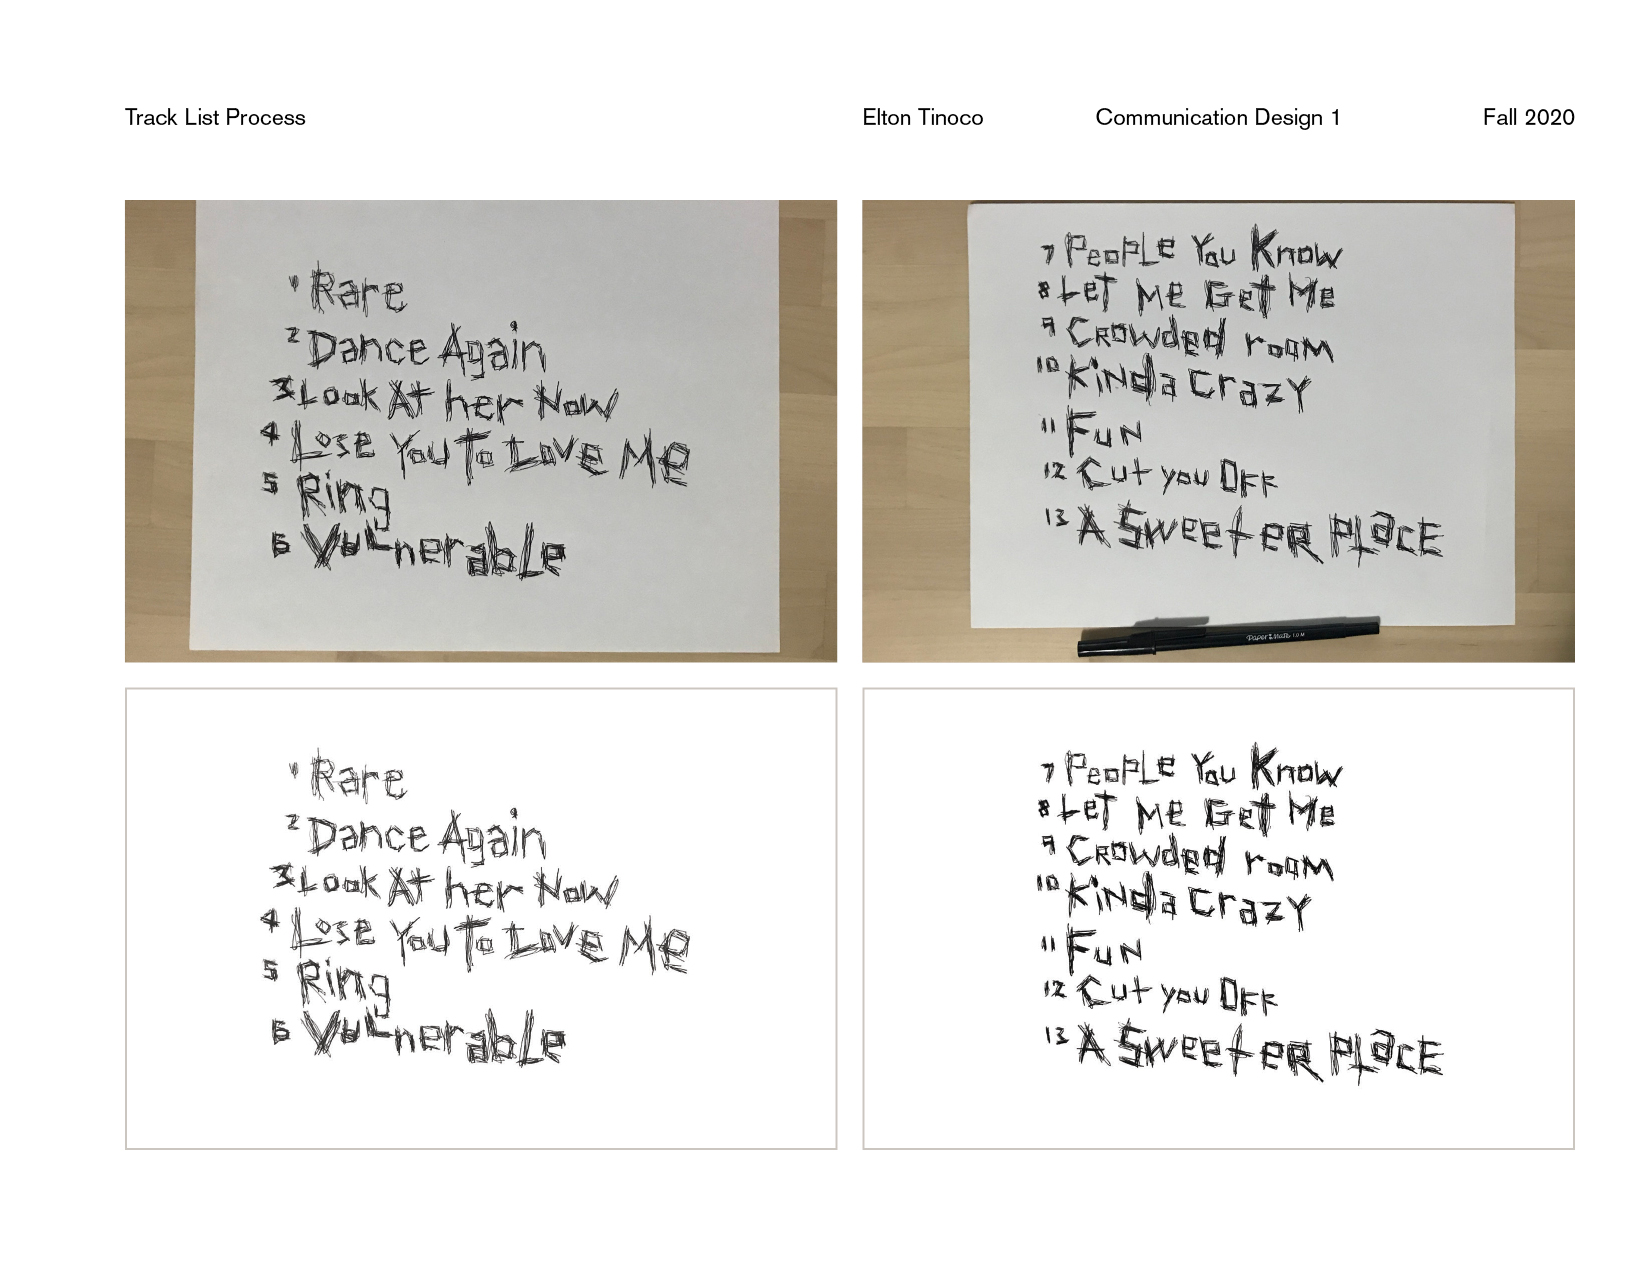 Track List Process Elton Tinoco Communication Design 1 Fall 2020
1 Rare
2 Dance Again
3 Look At her Now
4 Lose You To Love Me
5 Ring
6 Vulnerable
7 People You Know
8 Let Me Get Me
9 Crowded room
10 Kinda Crazy
11 Fun
12 Cut you Off
13 A Sweeter Place
Paper Mate 1.0 M
1 Rare
2 Dance Again
3 Look At her Now
4 Lose You To Love Me
5 Ring
6 Vulnerable
7 People You Know
8 Let Me Get Me
9 Crowded room
10 Kinda Crazy
11 Fun
12 Cut you Off
13 A Sweeter Place